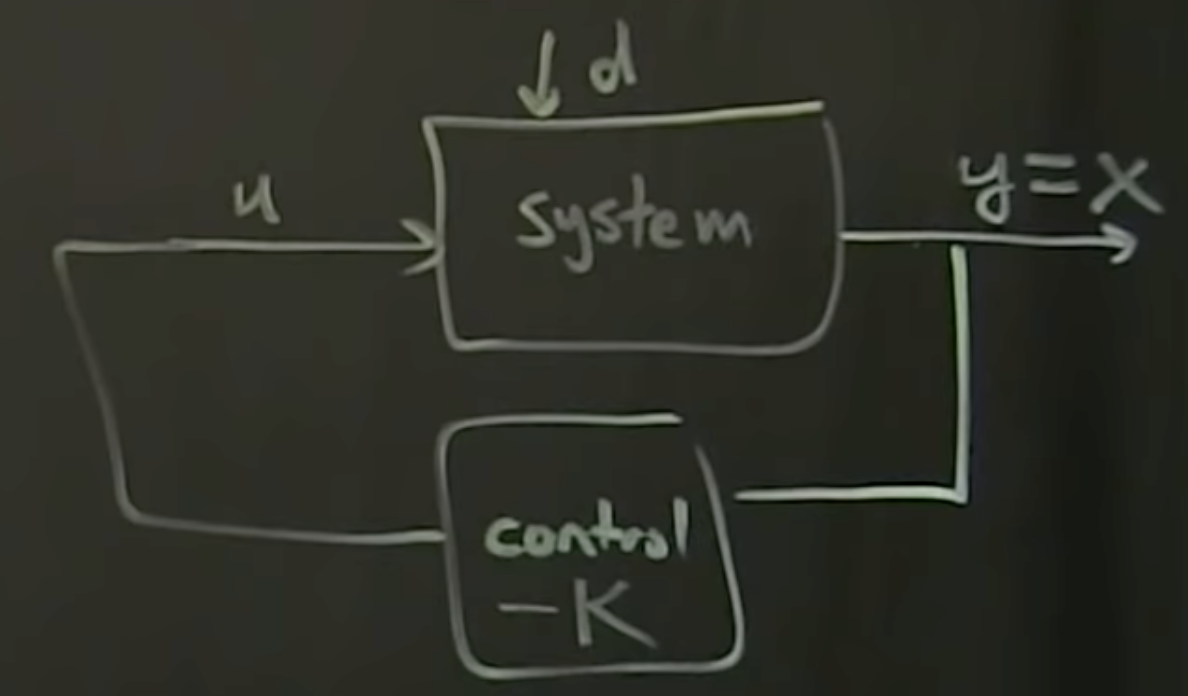 d
u
System
y = x
control
-K